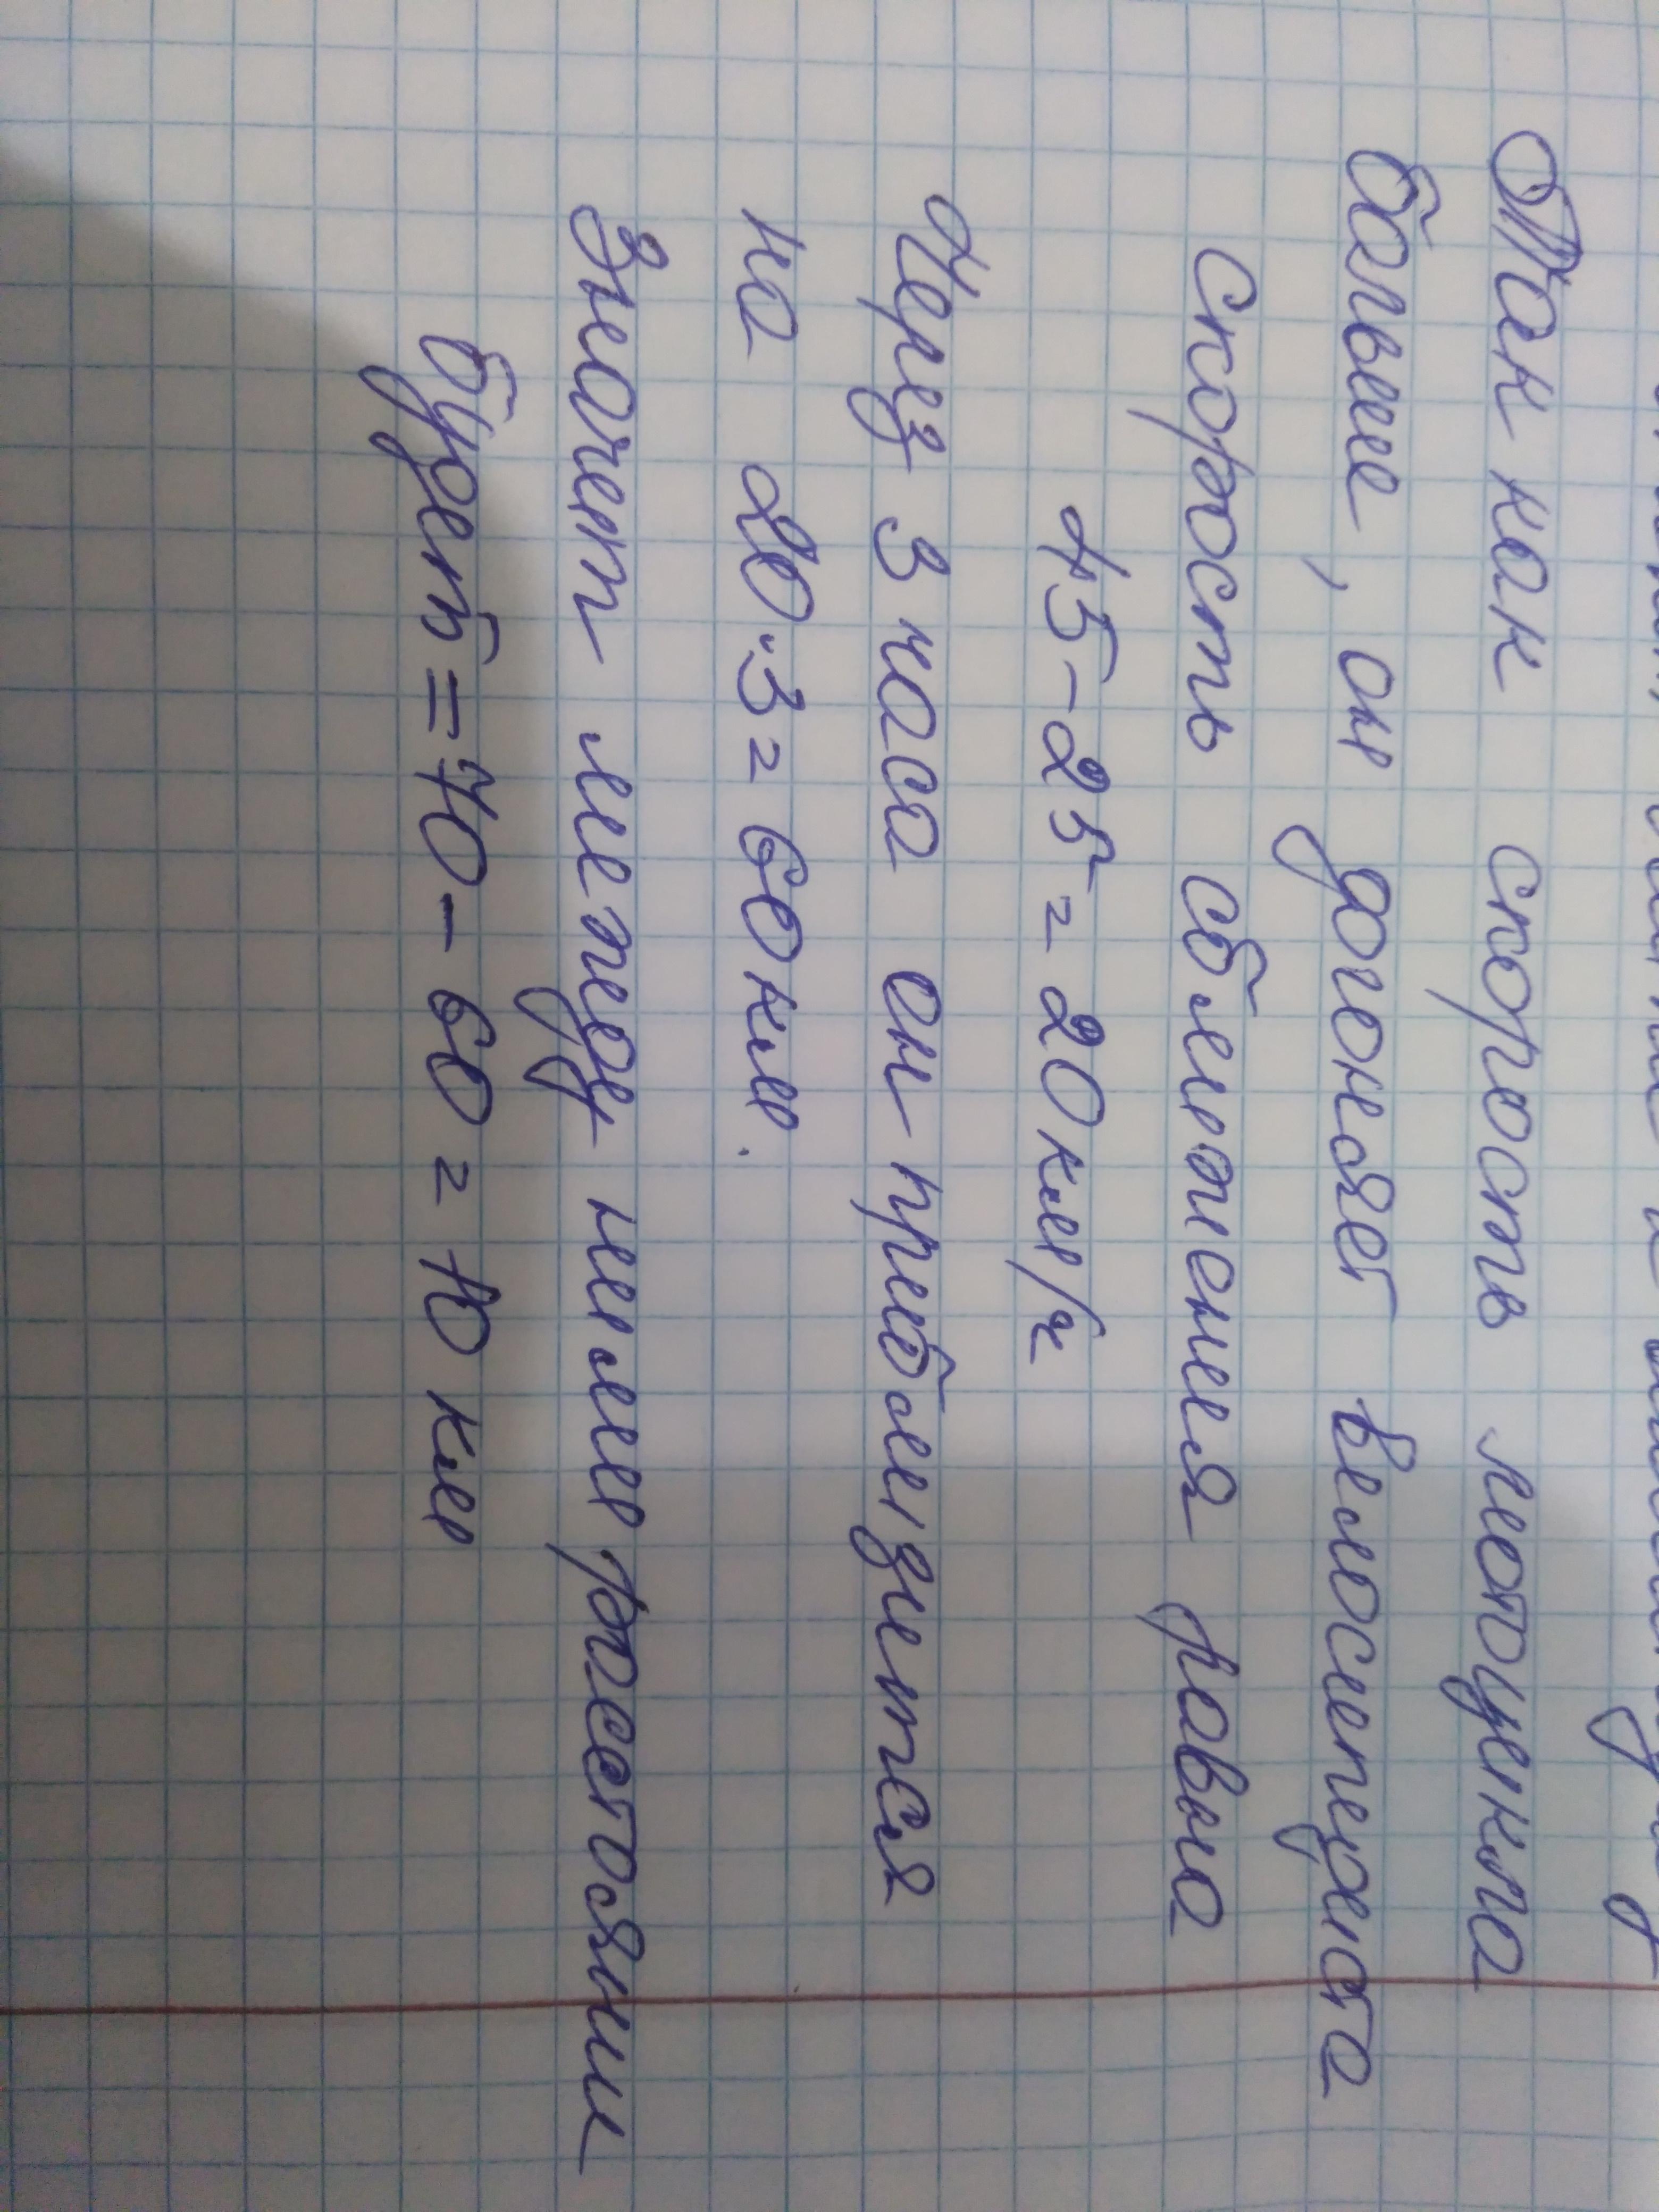 Так как скорость мотоцикла
больше, он догоняет велосипедиста
Скорость сближения равна
45-25=20км/ч
Через 3 часа он приблизится
на 20·3=60км.
Значет между ними расстояние
будет=70-60=10 км